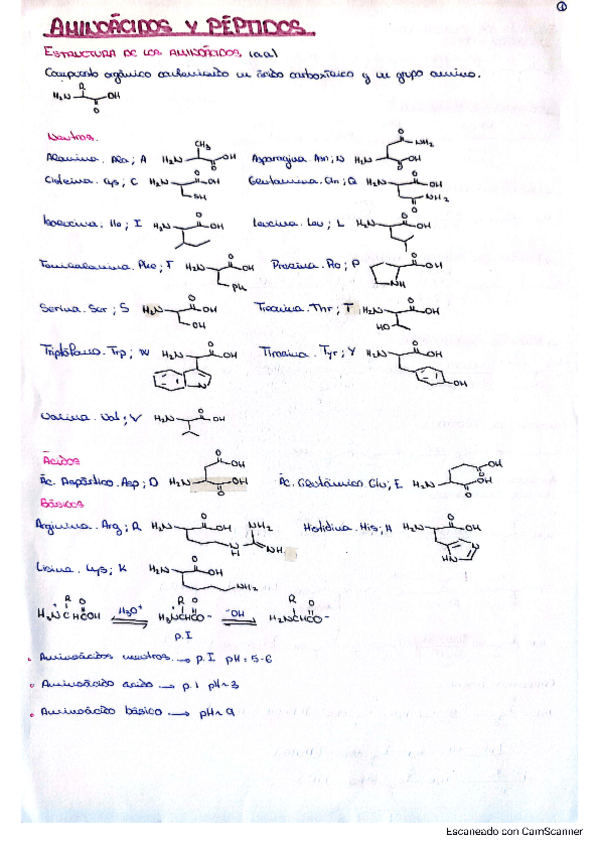 ①
AMINOÁCIDOS Y PÉPTIDOS.
ESTRUCTURA DE LOS AMINOÁCIDOS (a.a)
Compuesto orgánico conteniendo un ácido carboxílico y un grupo amino.
R
H₂N OH
O
Neutros.
Alanina. Ala; A H₂N CH₃ O OH Asparagina. Asn; N H₂N O NH₂ OH O
Cisteína. Cys; C H₂N O OH SH Glutamina. Gln; Q H₂N O OH NH₂ O
Isoleucina. Ile; I H₂N O OH Leucina. Leu; L H₂N O OH
Fenilalanina. Phe; F H₂N O OH Ph Prolina. Pro; P O OH NH
Serina. Ser; S H₂N O OH OH Treonina. Thr; T H₂N O OH HO
Triptófano. Trp; W H₂N O OH N Tirosina. Tyr; Y H₂N O OH OH
Valina. Val; V H₂N O OH
Ácidos
Ác. Aspártico. Asp; D H₂N O OH OH O Ác. Glutámico Glu; E H₂N O OH OH O
Básicos
Arginina. Arg; R H₂N O OH N H NH₂ NH Histidina. His; H H₂N O OH N HN
Lisina. Lys; K H₂N O OH NH₂
R O R O R O
H₃N⁺CHCOH H₃O⁺ H₃N⁺CHCO- -OH H₂NCHCO-
p.I
• Aminoácidos neutros → p.I pH = 5-6
• Aminoácido ácido → p.I pH~3
• Aminoácido básico → pH~9
Escaneado con CamScanner